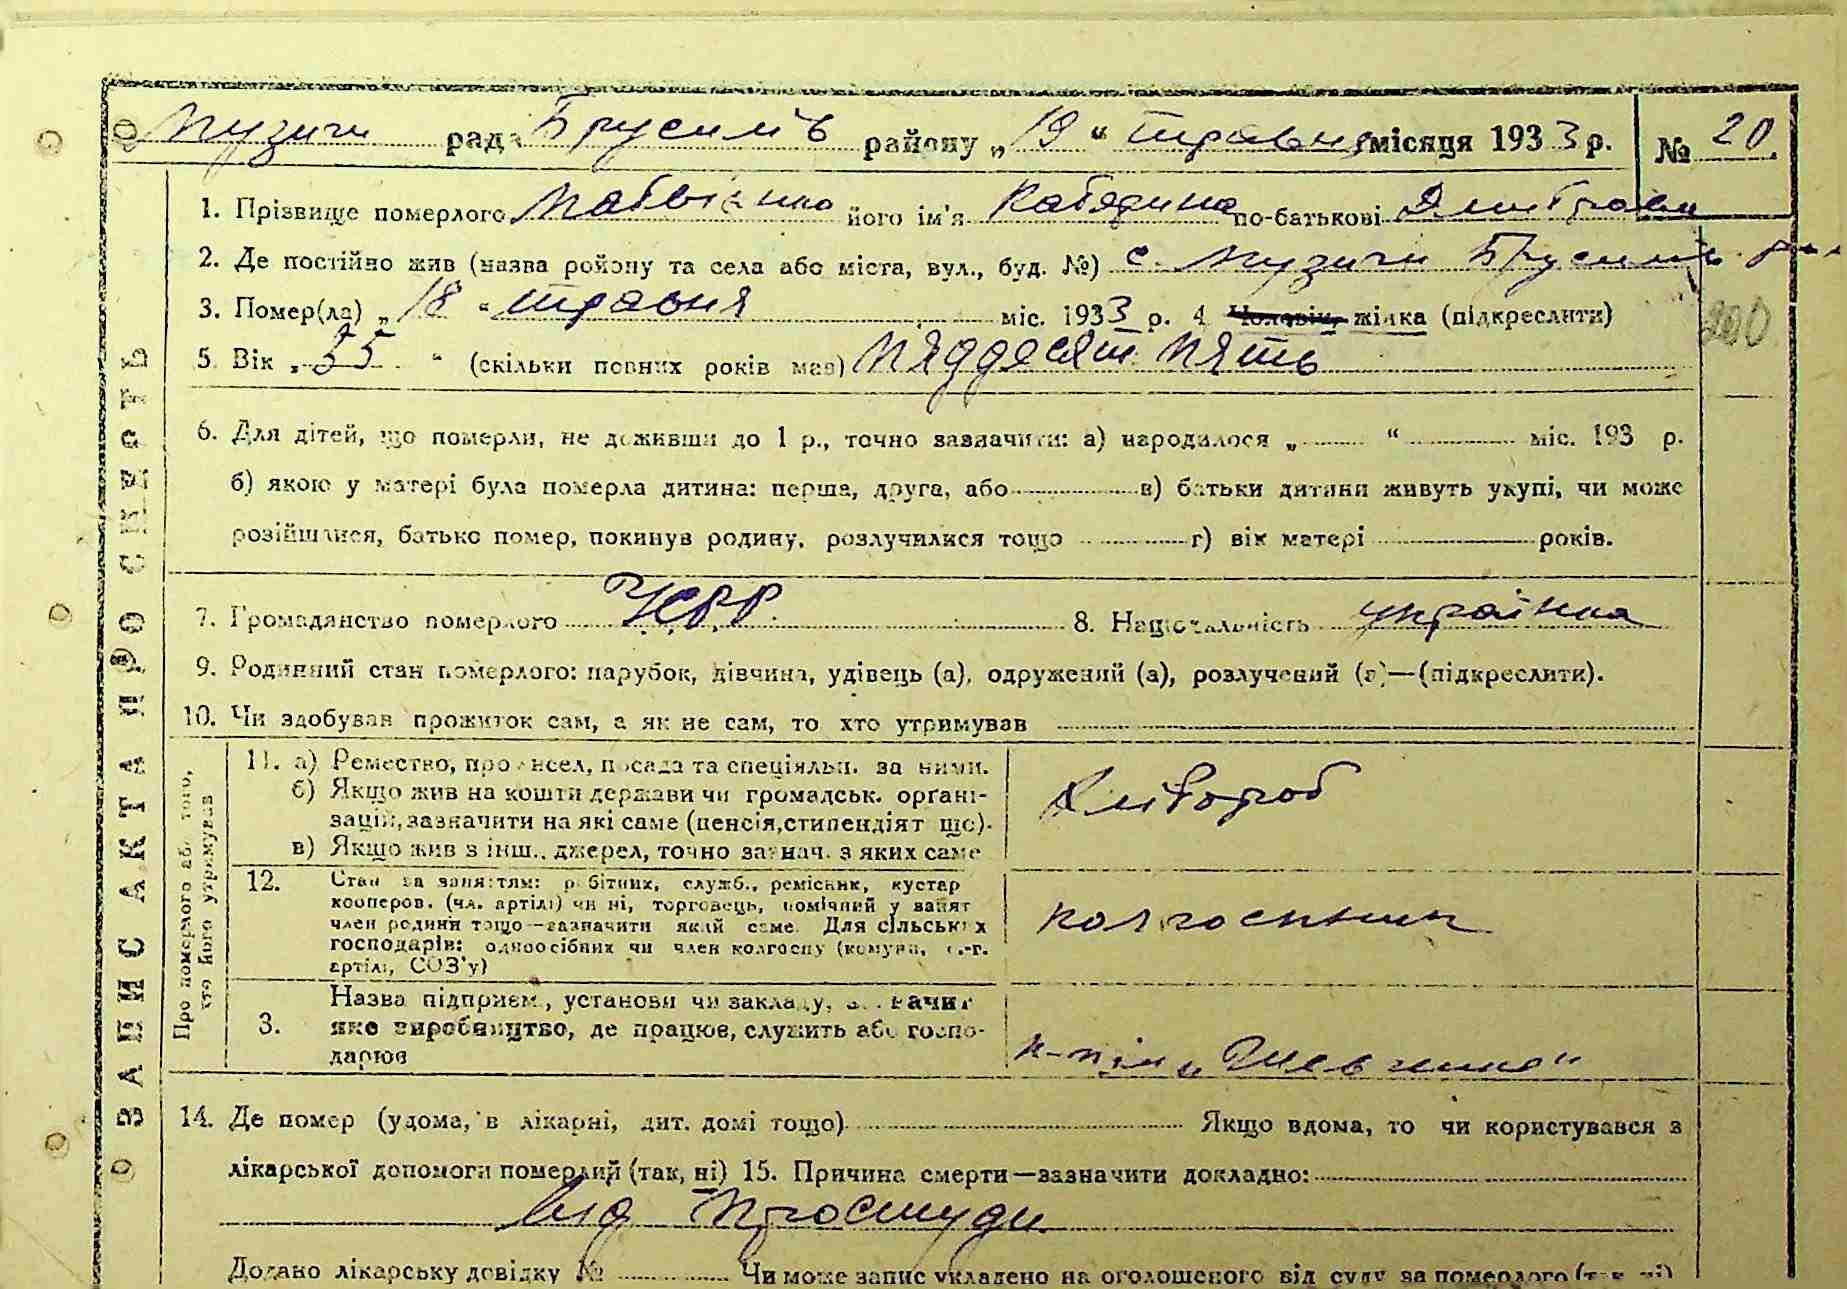 Музичи рада Брусилів району „19“ травня місяця 1933 р. № 20
1. Прізвище померлого Матвієнко його ім'я Катерина по-батькові
2. Де постійно жив (назва ройону та села або міста, вул., буд. №) с. Музичи Брусилів
3. Помер(ла) „18“ травня міс. 1933 р. 4 Чоловік, жінка (підкреслити)
200
5. Вік „55“ (скільки повних років мав) пяддесят пять
6. Для дітей, що померли, не доживши до 1 р., точно зазначити: а) народилося „ “ міс. 193 р.
б) якою у матері була померла дитина: перша, друга, або в) батьки дитини живуть укупі, чи може
розійшлися, батько помер, покинув родину, розлучилися тощо г) вік матері років.
7. Громадянство померлого УСРР. 8. Національність українка
9. Родинний стан померлого: парубок, дівчина, удівець (а), одружений (а), розлучений (а)—(підкреслити).
10. Чи здобував прожиток сам, а як не сам, то хто утримував
ЗАПИС АКТА ПРО СМЕРТЬ
Про померлого або того,
хто його утримував
11. а) Ремество, промисел, посада та спеціяльн. за ними.
б) Якщо жив на кошти держави чи громадськ. орґані-
зацій, зазначити на які саме (пенсія, стипендіят що).
в) Якщо жив з інш. джерел,точно зазнач. з яких саме
хлібороб
12. Стан за заняттям: робітник, служб., ремісник, кустар
кооперов. (чл. артілі) чи ні, торговець, помічний у занят
член родини тощо—зазначити який саме. Для сільських
господарів: одноосібник чи член колгоспу (комуна, с.-г.
артілі, СОЗ'у)
колгоспник
3. Назва підприєм., установи чи закладу, зазначит
яке виробництво, де працює, служить або госпо-
дарює
14. Де помер (удома, в лікарні, дит. домі тощо) Якщо вдома, то чи користувався з
лікарської допомоги померлий (так, ні) 15. Причина смерти—зазначити докладно:
від простуди
Додано лікарську довідку № Чи може запис укладено на оголошеного від суду за померлого (так, ні)